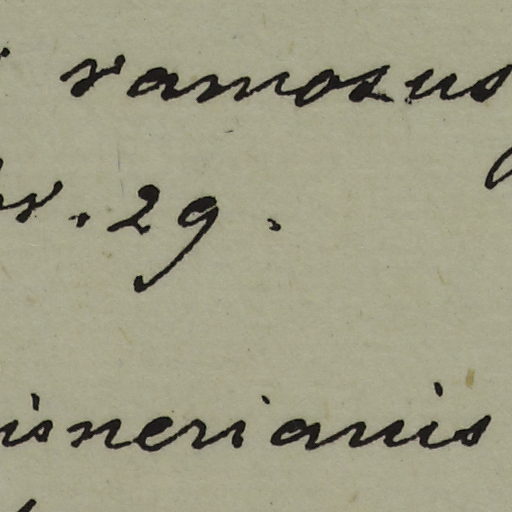 ramosus
. 29.
isnerianis